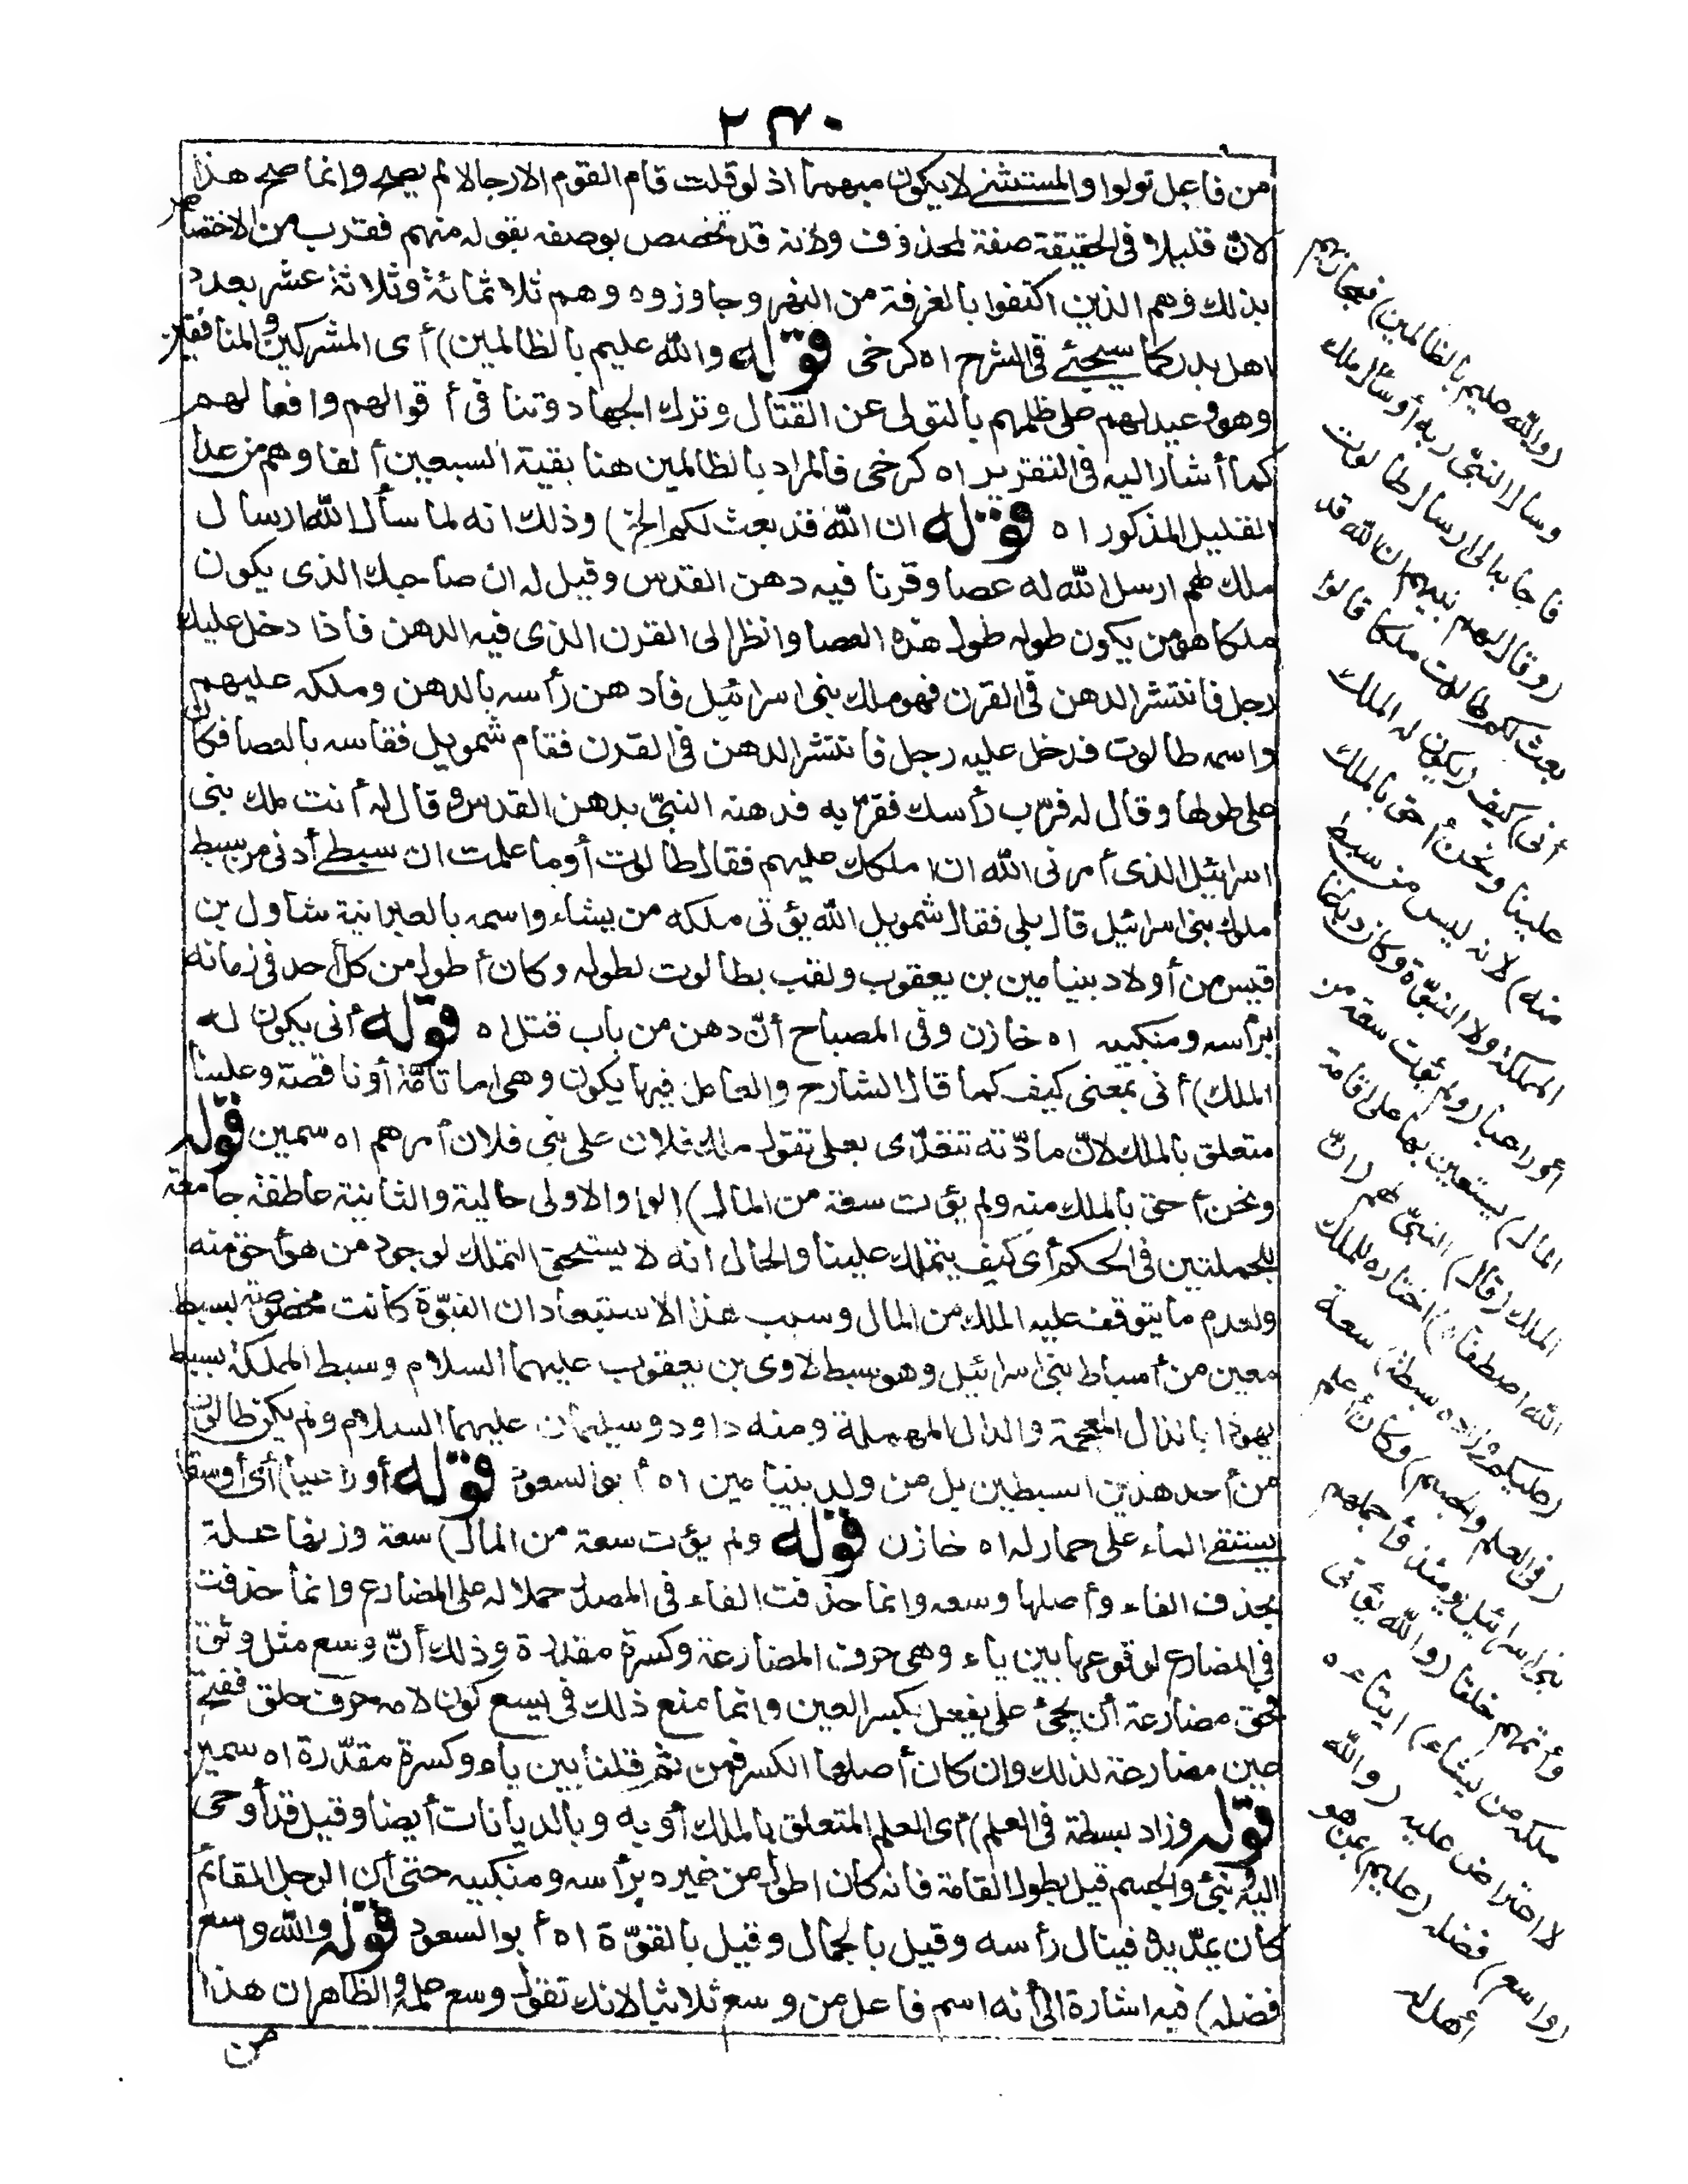 ٢٣٠
من فاعل تولوا والمستثنى لا يكون مبهما اذ لو قلت قام القوم الا رجالا لم يصح وانما صح هذا
لان قليلا فى الحقيقة صفة لمحذوف ولانه قد تخصص بوصفه بقوله منهم فقرب من الاختصاص
بذلك وهم الذين اكتفوا بالغرفة من النهر وجاوزوه وهم ثلاثمائة وثلاثة عشر بعدد
اهل بدر كما سيجئ فى الشرح اه كرخى قوله والله عليم بالظالمين) أى المشركين والمنافقين
وهو وعيد لهم على ظلمهم بالتولى عن القتال وترك الجهاد وتنافى أقوالهم وافعالهم
كما أشار اليه فى التقرير اه كرخى فالمراد بالظالمين هنا بقية السبعين ألفا وهم من عدا
القليل المذكور اه قوله ان الله قد بعث لكم الخ) وذلك انه لما سأل الله ارسال
ملك لهم ارسل الله له عصا وقرنا فيه دهن القدس وقيل له ان صاحبك الذى يكون
ملكا هو من يكون طوله طول هذه العصا وانظر الى القرن الذى فيه الدهن فاذا دخل عليك
رجل فانتشر الدهن فى القرن فهو ملك بنى اسرائيل فادهن رأسه بالدهن وملكه عليهم
واسمه طالوت فدخل عليه رجل فانتشر الدهن فى القرن فقام شمويل فقاسه بالعصا فكان
على طولها وقال له قرب رأسك فقربه فدهنه النبىّ بدهن القدس وقال له أنت ملك بنى
اسرائيل الذى أمرنى الله ان املكك عليهم فقال طالوت أوما علمت ان سبطى أدنى من سبط
ملوك بنى اسرائيل قال بلى فقال شمويل الله يؤتى ملكه من يشاء واسمه بالعبرانية شاول بن
قيس من أولاد بنيامين بن يعقوب ولقب بطالوت لطوله وكان أطول من كل أحد فى زمانه
برأسه ومنكبيه اه خازن وفى المصباح أنّ دهن من باب قتل اه قوله أنى يكون له
الملك) أنى بمعنى كيف كما قال الشارح والعامل فيها يكون وهى اما تامّة أو ناقصة وعلينا
متعلق بالملك لانّ مادّته تتعدّى بعلى تقول ملك فلان على بنى فلان أمرهم اه سمين قوله
ونحن أحق بالملك منه ولم يؤت سعة من المال) الواو الاولى حالية والثانية عاطفة جامعة
للجملتين فى الحكم أى كيف يتملك علينا والحال انه لا يستحق التملك لوجود من هو أحق منه
ولعدم ما يتوقف عليه الملك من المال وسبب هذا الاستبعاد ان النبوّة كانت مخصوصة بسبط
معين من أسباط بنى اسرائيل وهو سبط لاوى بن يعقوب عليهما السلام وسبط المملكة بسبط
يهوذا بالذال المعجمة والدال المهملة ومنه داود وسليمان عليهما السلام ولم يكن طالوت
من أحد هذين السبطين بل من ولد بنيامين اه أبو السعود قوله أو راعيا) أى أو سقاء
يستقى الماء على حمار له اه خازن قوله ولم يؤت سعة من المال) سعة وزنها علة
بحذف الفاء وأصلها وسعة وانما حذفت الفاء فى المصدر حملا له على المضارع وانما حذفت
فى المضارع لوقوعها بين ياء وهى حرف المضارعة وكسرة مقدرة وذلك أنّ وسع مثل وثق
فحق مضارعة أن يجئ على يفعل بكسر العين وانما منع ذلك فى يسع كون لامه حرف حلق ففتح
عين مضارعة لذلك وان كان أصلها الكسر فمن ثم قلنا بين ياء وكسرة مقدّرة اه سمين
قوله وزاد بسطة فى العلم) أى العلم المتعلق بالملك أو به وبالديانات أيضا وقيل قد أوحى
اليه ونبئ والجسم قيل بطول القامة فانه كان اطول من غيره برأسه ومنكبيه حتى أن الرجل القائم
كان يمدّ يده فينال رأسه وقيل بالجمال وقيل بالقوّة اه أبو السعود قوله والله واسع
فضله) فيه اشارة الى أنه اسم فاعل من وسع ثلاثيا لانك تقول وسع حلمه والظاهر ان هذا
من
(والله عليم بالظالمين) فيجازيهم
وسأل النبى ربه أو سأل ملك
فاجابه الى ارسال طالوت
(وقال لهم نبيهم ان الله قد
بعث لكم طالوت ملكا قالوا
أنى) كيف (يكون له الملك
علينا ونحن أحق بالملك
منه) لانه ليس من سبط
المملكة ولا النبوّة وكان دباغا
أو راعيا (ولم يؤت سعة من
المال) يستعين بها على اقامة
الملك (قال) النبىّ لهم (انّ
الله اصطفاه) اختاره للملك
(عليكم وزاده بسطة) سعة
(فى العلم والجسم) وكان أعلم
بنى اسرائيل يومئذ وأجملهم
وأتمهم خلقا (والله يؤتى
ملكه من يشاء) ايتاءه
لا اعتراض عليه (والله
واسع) فضله (عليم) بمن هو
أهل له